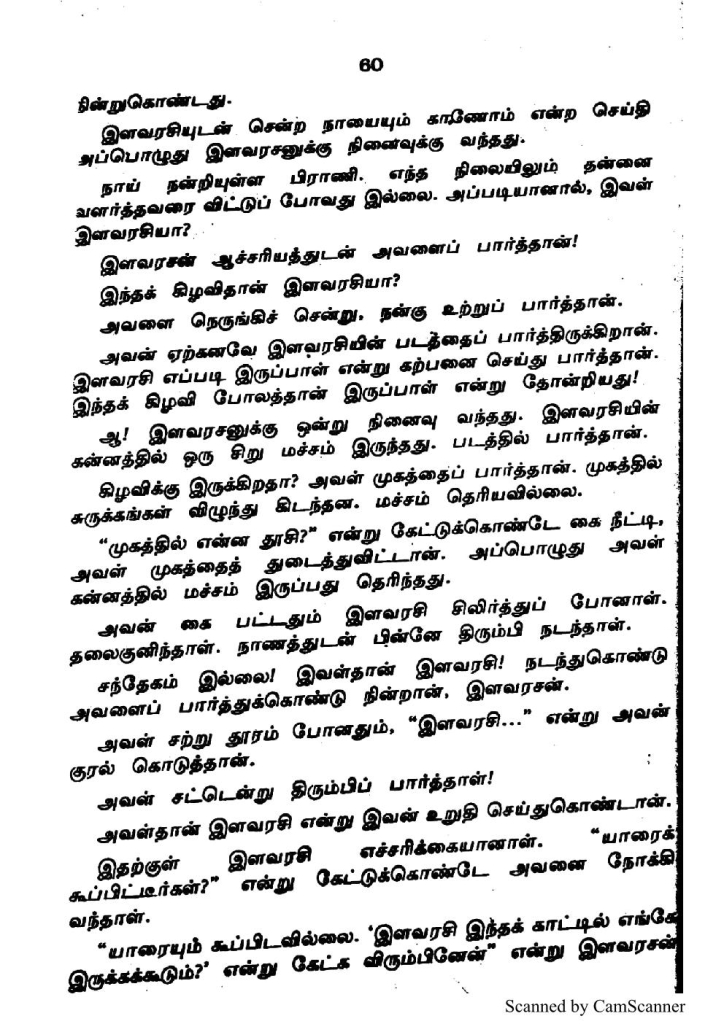 60
நின்றுகொண்டது.
இளவரசியுடன் சென்ற நாயையும் காணோம் என்ற செய்தி
அப்பொழுது இளவரசனுக்கு நினைவுக்கு வந்தது.
நாய் நன்றியுள்ள பிராணி. எந்த நிலையிலும் தன்னை
வளர்த்தவரை விட்டுப் போவது இல்லை. அப்படியானால், இவள்
இளவரசியா?
இளவரசன் ஆச்சரியத்துடன் அவளைப் பார்த்தான்!
இந்தக் கிழவிதான் இளவரசியா?
அவளை நெருங்கிச் சென்று, நன்கு உற்றுப் பார்த்தான்.
அவன் ஏற்கனவே இளவரசியின் படத்தைப் பார்த்திருக்கிறான்.
இளவரசி எப்படி இருப்பாள் என்று கற்பனை செய்து பார்த்தான்.
இந்தக் கிழவி போலத்தான் இருப்பாள் என்று தோன்றியது!
ஆ! இளவரசனுக்கு ஒன்று நினைவு வந்தது. இளவரசியின்
கன்னத்தில் ஒரு சிறு மச்சம் இருந்தது. படத்தில் பார்த்தான்.
கிழவிக்கு இருக்கிறதா? அவள் முகத்தைப் பார்த்தான். முகத்தில்
சுருக்கங்கள் விழுந்து கிடந்தன. மச்சம் தெரியவில்லை.
“முகத்தில் என்ன தூசி?” என்று கேட்டுக்கொண்டே கை நீட்டி,
அவள் முகத்தைத் துடைத்துவிட்டான். அப்பொழுது அவள்
கன்னத்தில் மச்சம் இருப்பது தெரிந்தது.
அவன் கை பட்டதும் இளவரசி சிலிர்த்துப் போனாள்.
தலைகுனிந்தாள். நாணத்துடன் பின்னே திரும்பி நடந்தாள்.
சந்தேகம் இல்லை! இவள்தான் இளவரசி! நடந்துகொண்டு
அவளைப் பார்த்துக்கொண்டு நின்றான், இளவரசன்.
அவள் சற்று தூரம் போனதும், “இளவரசி...” என்று அவன்
குரல் கொடுத்தான்.
அவள் சட்டென்று திரும்பிப் பார்த்தாள்!
அவள்தான் இளவரசி என்று இவன் உறுதி செய்துகொண்டான்.
இதற்குள் இளவரசி எச்சரிக்கையானாள். “யாரைக்
கூப்பிட்டீர்கள்?” என்று கேட்டுக்கொண்டே அவனை நோக்கி
வந்தாள்.
“யாரையும் கூப்பிடவில்லை. ‘இளவரசி இந்தக் காட்டில் எங்கே
இருக்கக்கூடும்?’ என்று கேட்க விரும்பினேன்” என்று இளவரசன்
Scanned by CamScanner